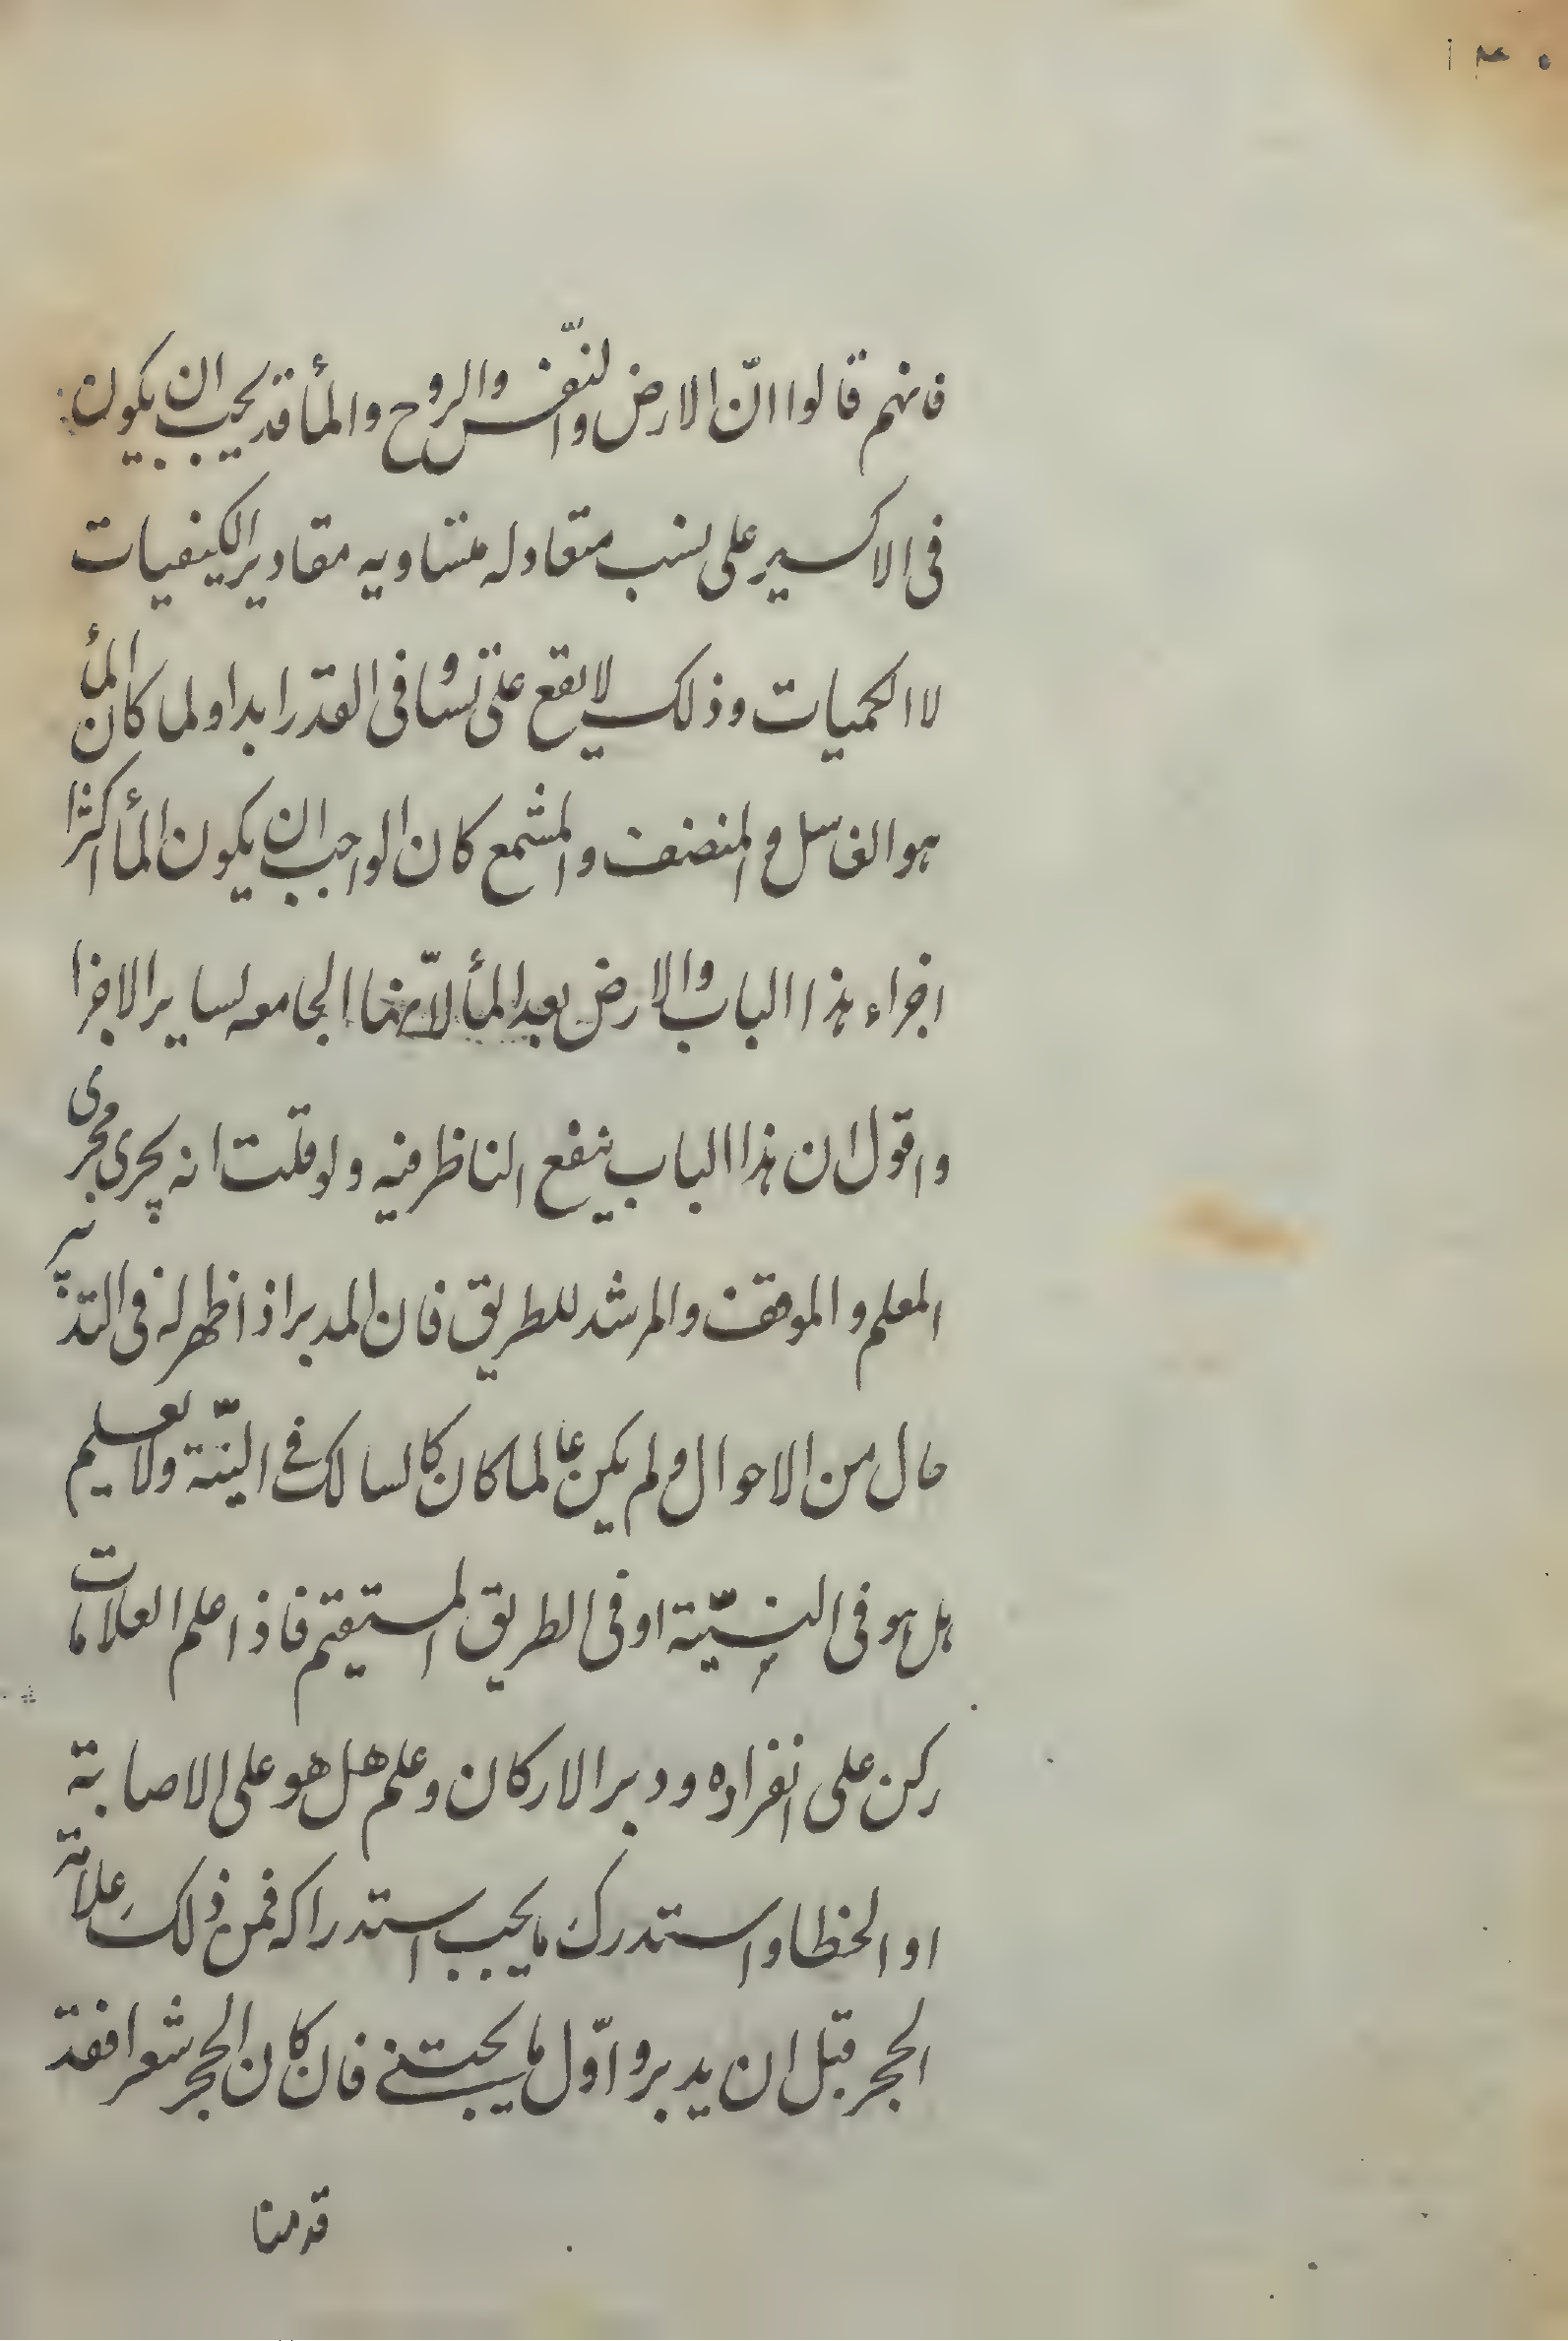 ١٤٠
فانهم قالوا انّ الارض والنّفس والروح والمأ قد يجب ان يكون
فى الاكسير على نسب متعادله متساويه مقادير الكيفيات
لا الكميات وذلك لا يقع على تساو فى القدر ابدا ولما كان المأ
هو الغاسل والمنضف والمشمع كان الواجب ان يكون المأ اكثر ا
اجزاء هذا الباب والارض بعد المأ لانّها الجامعه لساير الاجزا
واقول ان هذا الباب ينفع الناظر فيه ولو قلت انه يجرى مجرى
المعلم والموقف والمرشد للطريق فان المدبر اذ اظهر له فى التدبير
حال من الاحوال ولم يكن عالما كان كالسالك فى التيّه ولا يعلم
هل هو فى التيّة او فى الطريق المستيقم فاذا علم العلامات
ركن على انفراده ودبر الاركان وعلم هل هو على الاصابة
او الخطا واستدرك ما يجب استدراكه فمن ذلك علامة
الحجر قبل ان يدبر واوّل ما يجتنى فان كان الحجر شعرا فقد
قدمنا